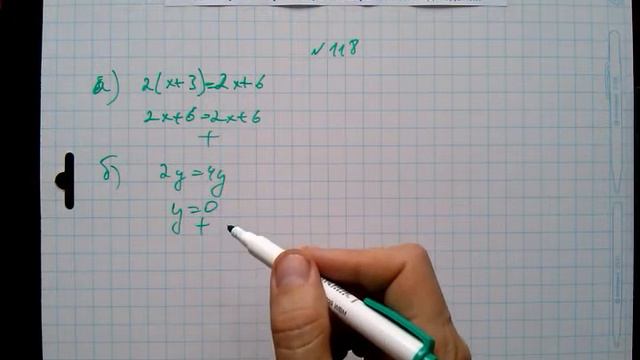 №118
а) 2(x+3)=2x+6
2x+6=2x+6
+
б) 2y=4y
y=0
+